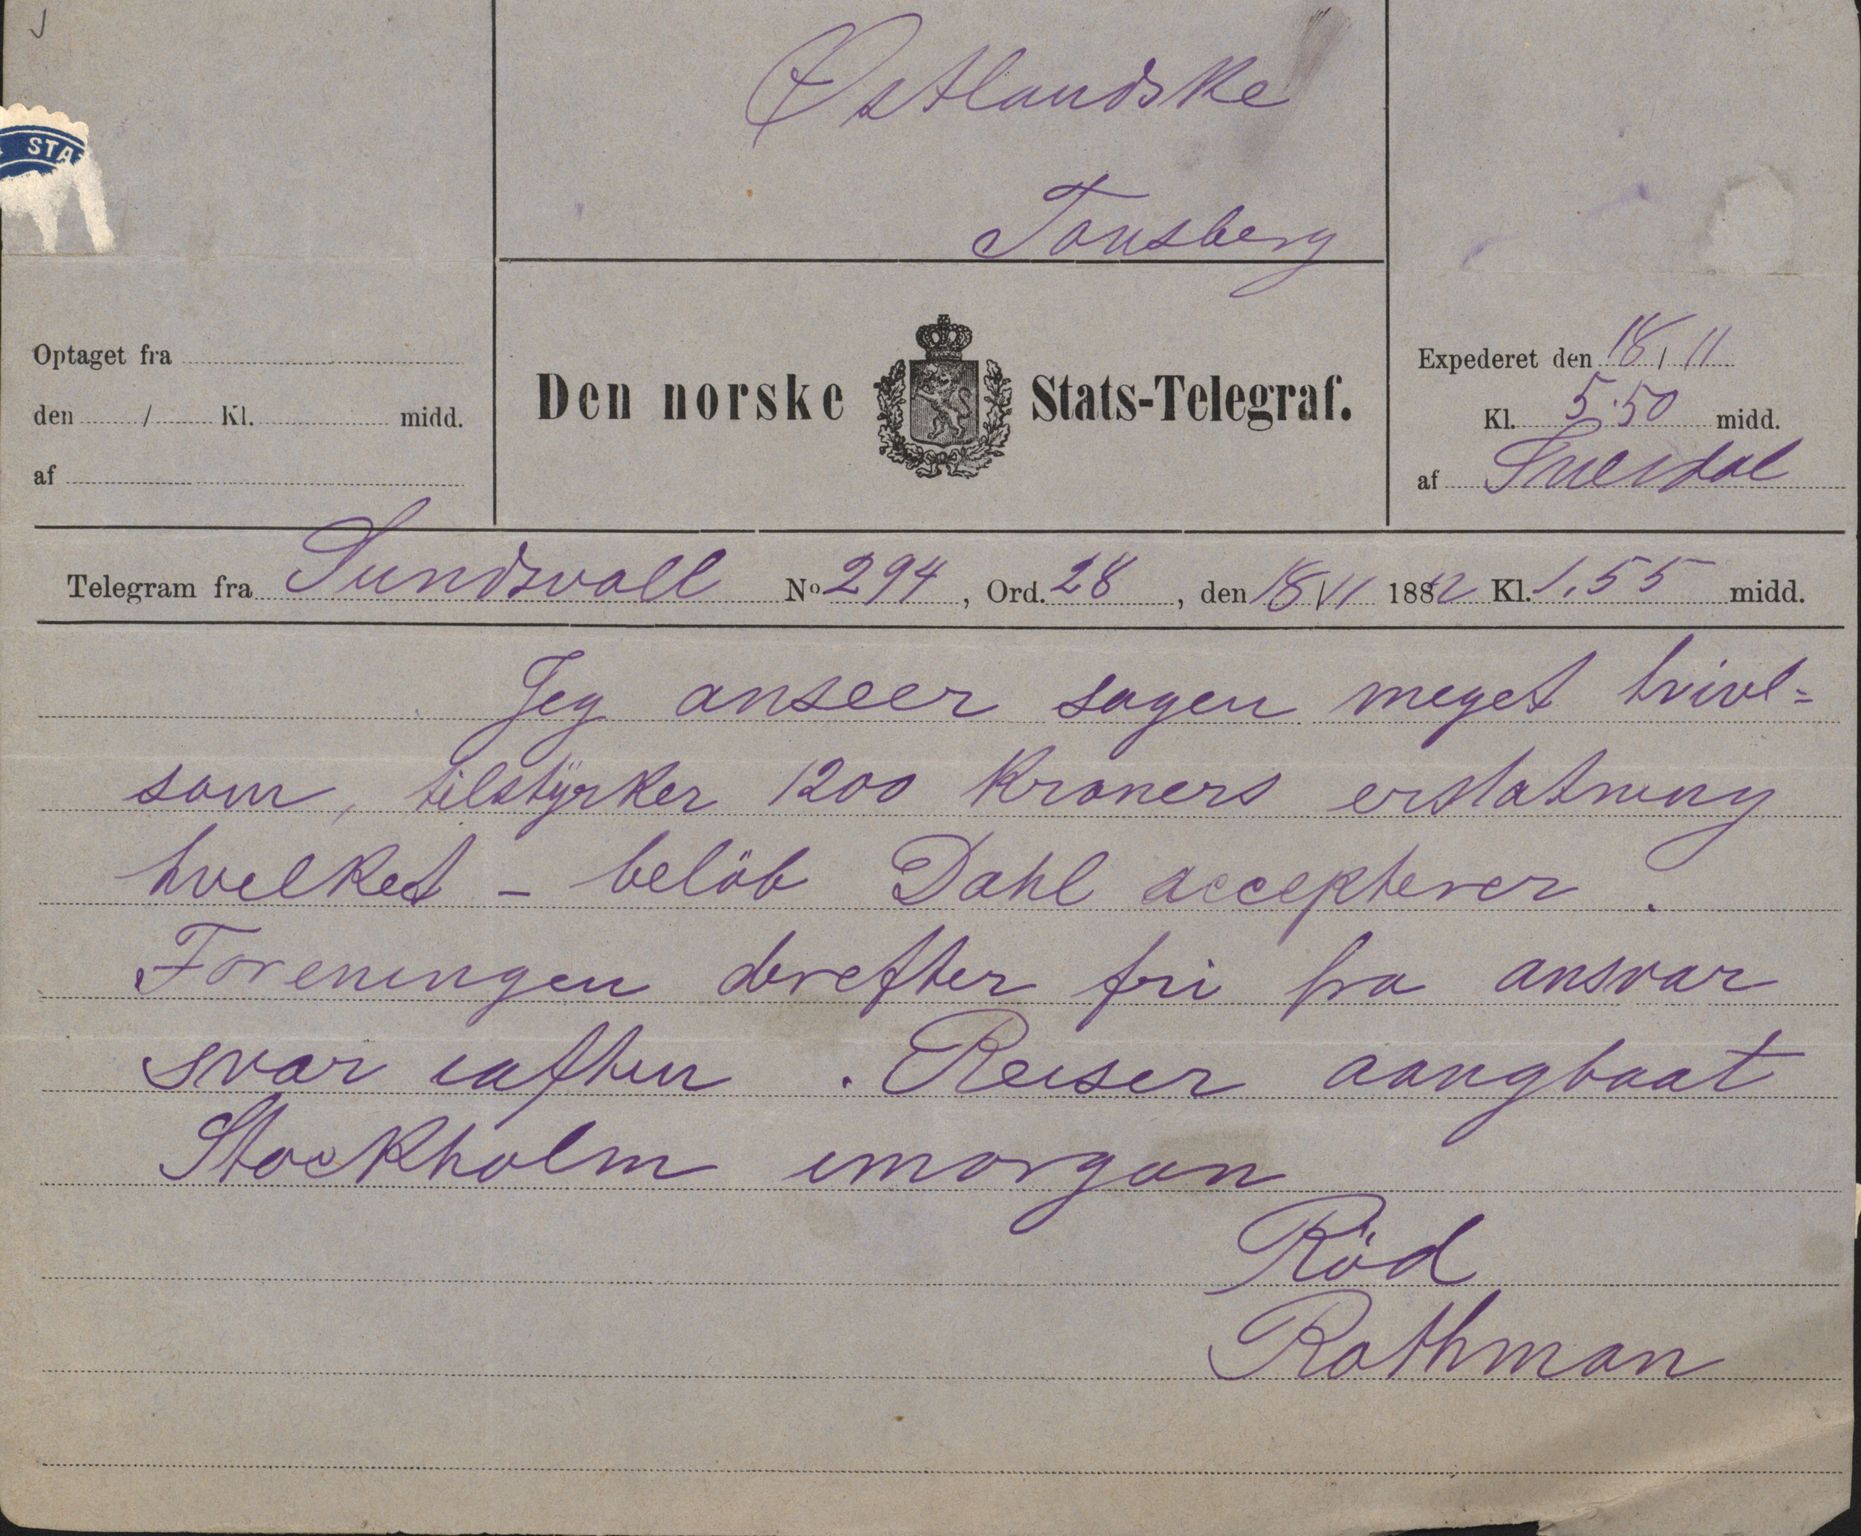 Østlandske
Tønsberg
STA
Optaget fra
den / Kl. midd.
af
Den norske Stats-Telegraf.
Expederet den 18/11
Kl. 5.50 midd.
af
Telegram fra Sundsvall No 294, Ord. 28, den 18/11 1882 Kl. 1.55 midd.
Jeg anseer sagen meget tvivl=
som, tilstyrker 1200 Kroners erstatning
hvilket - belöb Dahl accepterer.
Foreningen derefter fri fra ansvar
svar iaften. Reiser aangbaat
Stockholm imorgan
Röd
Rothman